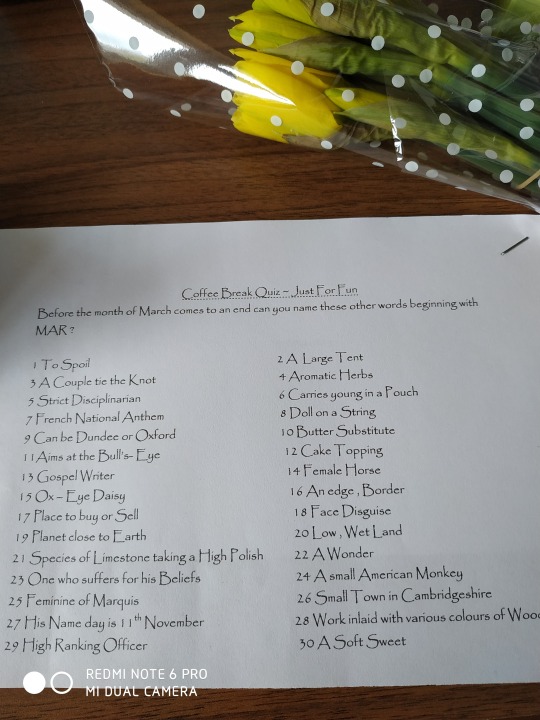 Coffee Break Quiz ~ Just For Fun
Before the month of March comes to an end can you name these other words beginning with
MAR ?
1 To Spoil
2 A Large Tent
3 A Couple tie the Knot
4 Aromatic Herbs
5 Strict Disciplinarian
6 Carries young in a Pouch
7 French National Anthem
8 Doll on a String
9 Can be Dundee or Oxford
10 Butter Substitute
11 Aims at the Bull's- Eye
12 Cake Topping
13 Gospel Writer
14 Female Horse
15 Ox – Eye Daisy
16 An edge , Border
17 Place to buy or Sell
18 Face Disguise
19 Planet close to Earth
20 Low , Wet Land
21 Species of Limestone taking a High Polish
22 A Wonder
23 One who suffers for his Beliefs
24 A small American Monkey
25 Feminine of Marquis
26 Small Town in Cambridgeshire
27 His Name day is 11th November
28 Work inlaid with various colours of
29 High Ranking Officer
30 A Soft Sweet
REDMI NOTE 6 PRO
MI DUAL CAMERA